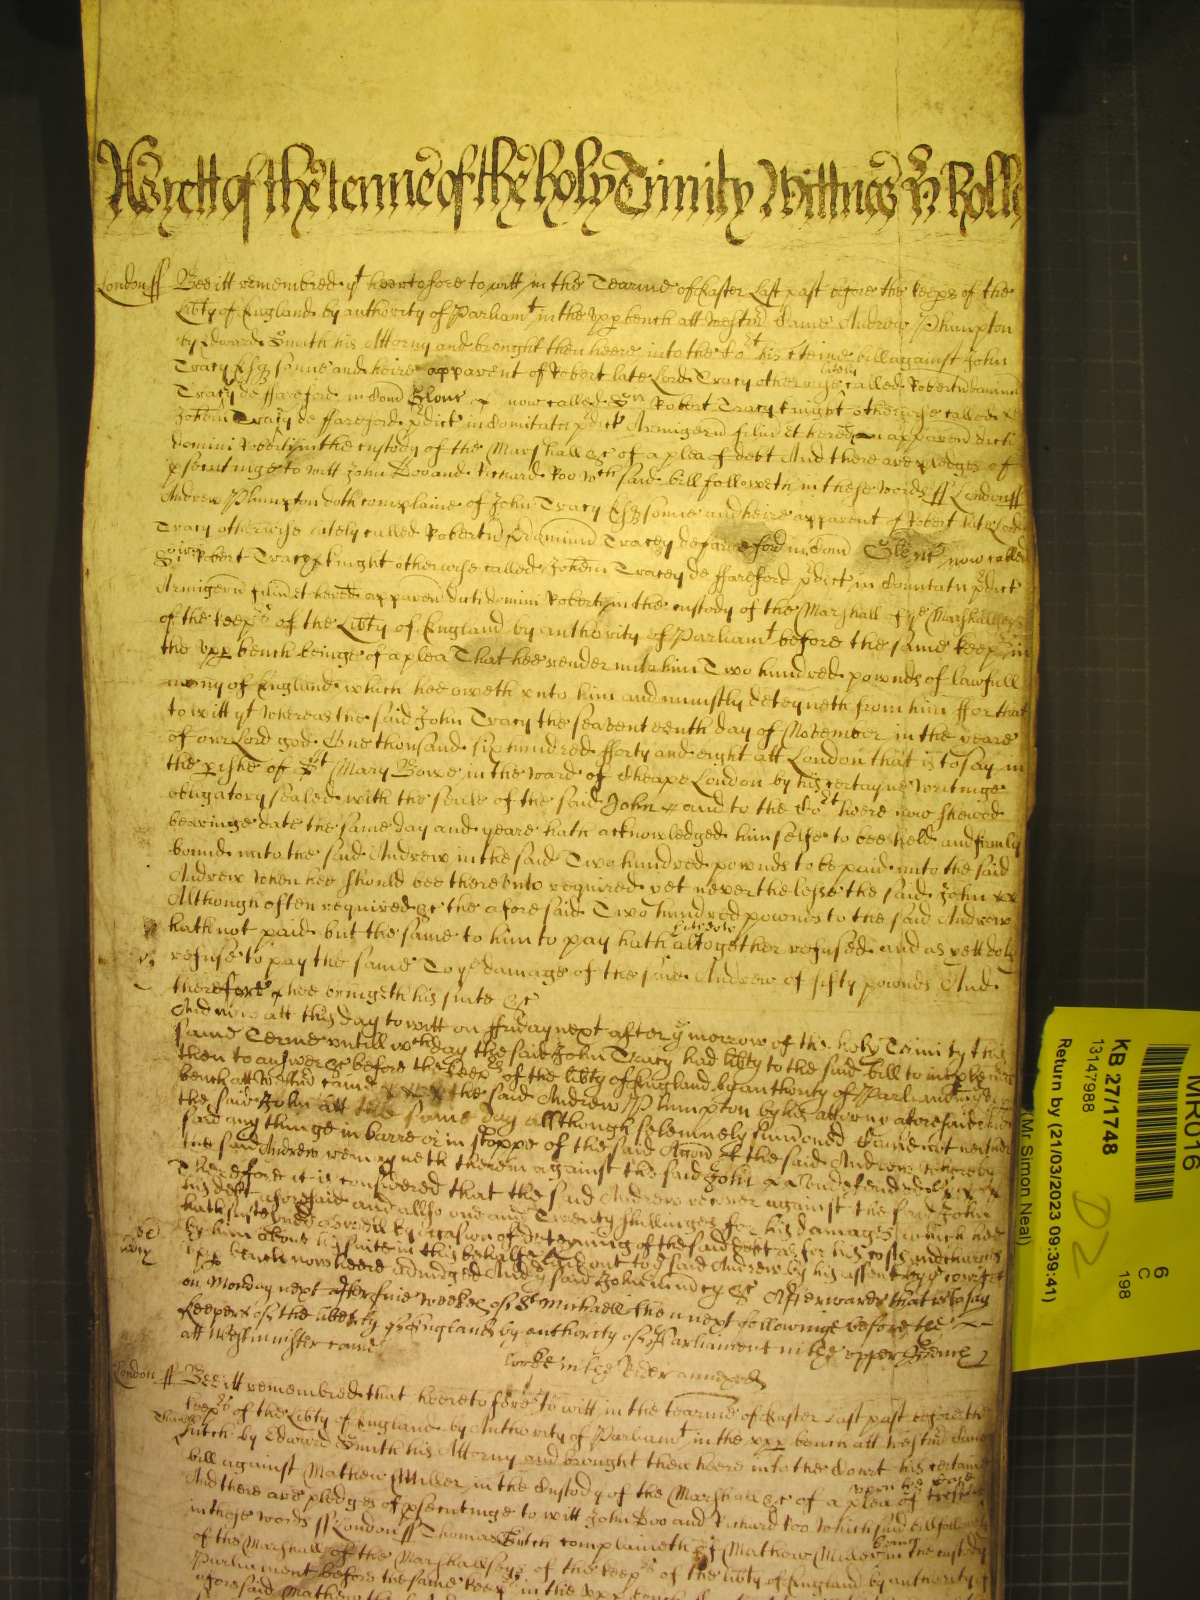 As yett of the terme of the holy Trinity Wittnes Ry Rolle
London ss Bee itt remembred yt heretofore to witt in the Tearme of Easter Last past before the keeps of the
Libty of England by authority of Parliamt in the Upp bench att Westmr Came Andrew Plumpton
by Edward Smith his Attorny and brought then heere into the Cort his certeine bill against John
Tracy Esqr sonne and heire apparent of Robert late Lord Tracy otherwise lately called Robertu dominu
Tracy de ffareford in Com Glouc x now called Sir Robert Tracy knight otherwise called x
Johem Tracy de ffareford pdict in Comitatu pdict Armigerū filiū et hered apparen dicti
domini Roberti in the custody of the Marshall &c of a plea of debt And there are pledges of
psecutinge to witt John Doo and Richard Roo wch said bill followeth in these words ss London ss
Andrew Plumpton doth complaine of John Tracy Esqr sonne and heire apparent of Robert late Lord
Tracy otherwise lately called Robertū Dominū Tracey de fareford in Com Glouc now called
Sir Robert Tracy knight otherwise called Johem Tracey de ffareford pdict in Comitatu pdict
Armigerū filiū et hered apparen dicti domini Roberti in the custody of the Marshall of ye Marshallseys
of the keeps of the Libty of England by authority of Parliamt before the same keeps in
the upp bench beinge of a plea That hee render unto him Two hundred pownds of lawfull
mony of England which hee oweth unto him and uniustly deteyneth from him ffor that
to witt yt whereas the said John Tracy the seaventeenth day of November in the yeare
of our Lord god One thousand six hundred fforty and eight att London that is to say in
the pishe of St Mary Bowe in the ward of Cheape London by his certayne writinge
obligatory sealed with the seale of the said John x and to the Cort heere now shewed
bearinge date the same day and yeare hath acknowledged himselfe to bee held and firmly
bound unto the said Andrew in the said Two hundred pownds to be paid unto the said
Andrew when hee should bee thereunto required yet neverthelesse the said John xx
Although often required &c the aforesaid Two hundred pownds to the said Andrew
hath not paid but the same to him to pay hath altogether refused and as yett doth
refuse to pay the same To ye damage of the said Andrew of fifty pownds And
therefore x hee bringeth his suite &c
And now att this day to witt on ffriday next after ye morrow of the holy Trinity this
same Terme untill wch day the said John Tracy had libty to the said bill to imparle and
then to answer &c before the keeps of the libty of England by authority of Parliamt in the upp
bench att Westmr came xxxx the said Andrew Plumpton by his attorny aforesaid And
the said John att the same day allthough solemnely sumoned Came not neither
said any thinge in barre or in stoppe of the said Accon of the said Andrew whereby
the said Andrew remayneth therein against the said John xx undefended xxxx
Therefore it is considered that the said Andrew recover against the said John
his debt aforesaid and allso one and Twenty shillinges for his damages which hee
hath susteined aswell by occasion of deteyning of the said debt as for his costs and charges
by him about his suite in this behalfe Laid out to ye said Andrew by his assent by ye Cort of
upp bench now heere adiudged And ye said John in mcy &c Afterwards that is to say
on Monday next after five weekes of St Michaell then next followinge before the
keepers of the liberty of England by authority of Parliament in the upper Bench
att Westminster came
Looke in the Rider annexed
London ss Bee itt remembred that heeretofore to witt in the tearme of Easter Last past before the
keeps of the Libty of England by Authority of Parliamt in the upp bench att Westmr Came
Thomas
Dutch by Edward Smith his Attorny and brought then heere into the Court his certaine
bill against Mathew Miller in the Custody of the Marshall &c of a plea of trespas upon the Case
And there are pledges of psecutinge to witt John Doo and Richard Roo which said bill followeth
in these words ss London ss Thomas Dutch complaineth of Mathew Miller beinge in the custody
of the Marshall of the Marshallseys of the keeps of the libty of England by authority of
Parliament before the same keeps in the upp bench
aforesaid Mathew
MR016
6
C
198
KB 27/1748
13147988
Return by (21/03/2023 09:39:41)
(Mr Simon Neal)
D2